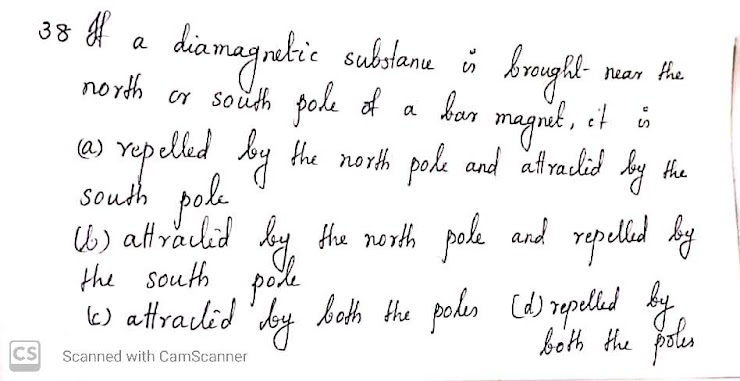 38 If a diamagnetic substance is brought near the
north or south pole of a bar magnet, it is
(a) repelled by the north pole and attracted by the
south pole
(b) attracted by the north pole and repelled by
the south pole
(c) attracted by both the poles (d) repelled by
both the poles
CS Scanned with CamScanner